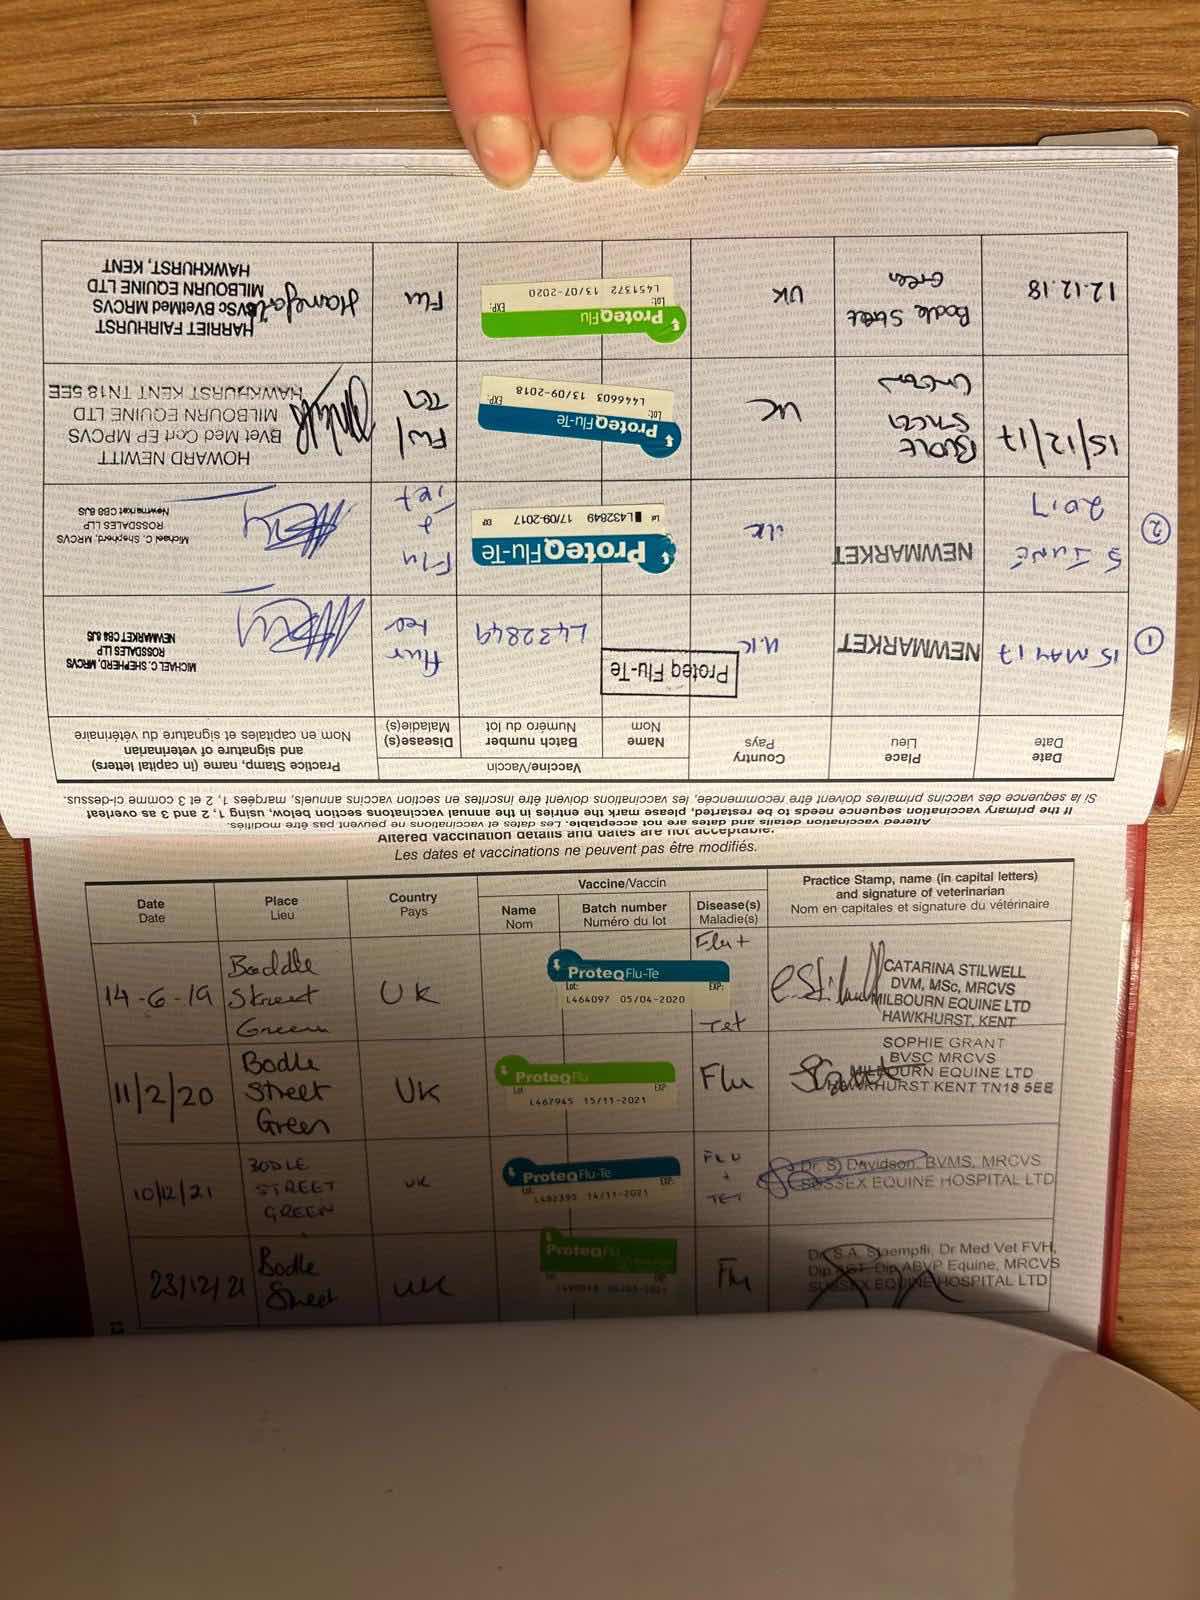 Altered vaccination details and dates are not acceptable. Les dates et vaccinations ne peuvent pas être modifiés.
If the primary vaccination sequence needs to be restarted, please mark the entries in the annual vaccinations section below, using 1, 2 and 3 as overleaf
Si la séquence des vaccins primaires doivent être recommencée, les vaccinations doivent être inscrites en section vaccins annuels, marquées 1, 2 et 3 comme ci-dessus.
Date
Date
Place
Lieu
Country
Pays
Vaccine/Vaccin
Name
Nom
Batch number
Numéro du lot
Disease(s)
Maladie(s)
Practice Stamp, name (in capital letters)
and signature of veterinarian
Nom en capitales et signature du vétérinaire
1
15 MAY 17
NEWMARKET
U.K
Proteq Flu-Te
L432849
MICHAEL C. SHEPHERD, MRCVS
ROSSDALES LLP
NEWMARKET CB8 8JS
2
5 JUNE
2017
NEWMARKET
UK
ProteqFlu-Te
Lot L432849 17/09-2017 EXP
Flu
&
Tet
Michael C. Shepherd, MRCVS
ROSSDALES LLP
Newmarket CB8 8JS
15/12/17
BODLE
STREET
GREEN
UK
ProteqFlu-Te
Lot: EXP:
L446603 13/09-2018
Flu/
Tet
HOWARD NEWITT
BVet Med Cert EP MPCVS
MILBOURN EQUINE LTD
HAWKHURST KENT TN18 5EE
12.12.18
Bodle Street
Green
UK
ProteqFlu
Lot: EXP:
L451372 13/07-2020
Flu
HARRIET FAIRHURST
BVSc BVetMed MRCVS
MILBOURN EQUINE LTD
HAWKHURST, KENT
Altered vaccination details and dates are not acceptable.
Les dates et vaccinations ne peuvent pas être modifiés.
Date
Date
Place
Lieu
Country
Pays
Vaccine/Vaccin
Name
Nom
Batch number
Numéro du lot
Disease(s)
Maladie(s)
Practice Stamp, name (in capital letters)
and signature of veterinarian
Nom en capitales et signature du vétérinaire
14-6-19
Boddle
Street
Green
UK
ProteqFlu-Te
Lot: EXP:
L464097 05/04-2020
Flu+
Tet
C. Stilwell
CATARINA STILWELL
DVM, MSc, MRCVS
MILBOURN EQUINE LTD
HAWKHURST, KENT
11/2/20
Bodle
Street
Green
UK
ProteqFlu
Lot EXP
L467945 15/11-2021
Flu
SOPHIE GRANT
BVSC MRCVS
MILBOURN EQUINE LTD
HAWKHURST KENT TN18 5EE
10/12/21
BODLE
STREET
GREEN
UK
ProteqFlu-Te
EXP:
14/11-2021
FLU
+
TET
Dr. S) Davidson, BVMS, MRCVS
SUSSEX EQUINE HOSPITAL LTD
23/12/21
Bodle
Street
UK
ProteqFlu
Flu
Dr. S.A. Staempfli, Dr Med Vet FVH,
Dip AST, Dip ABVP Equine, MRCVS
SUSSEX EQUINE HOSPITAL LTD